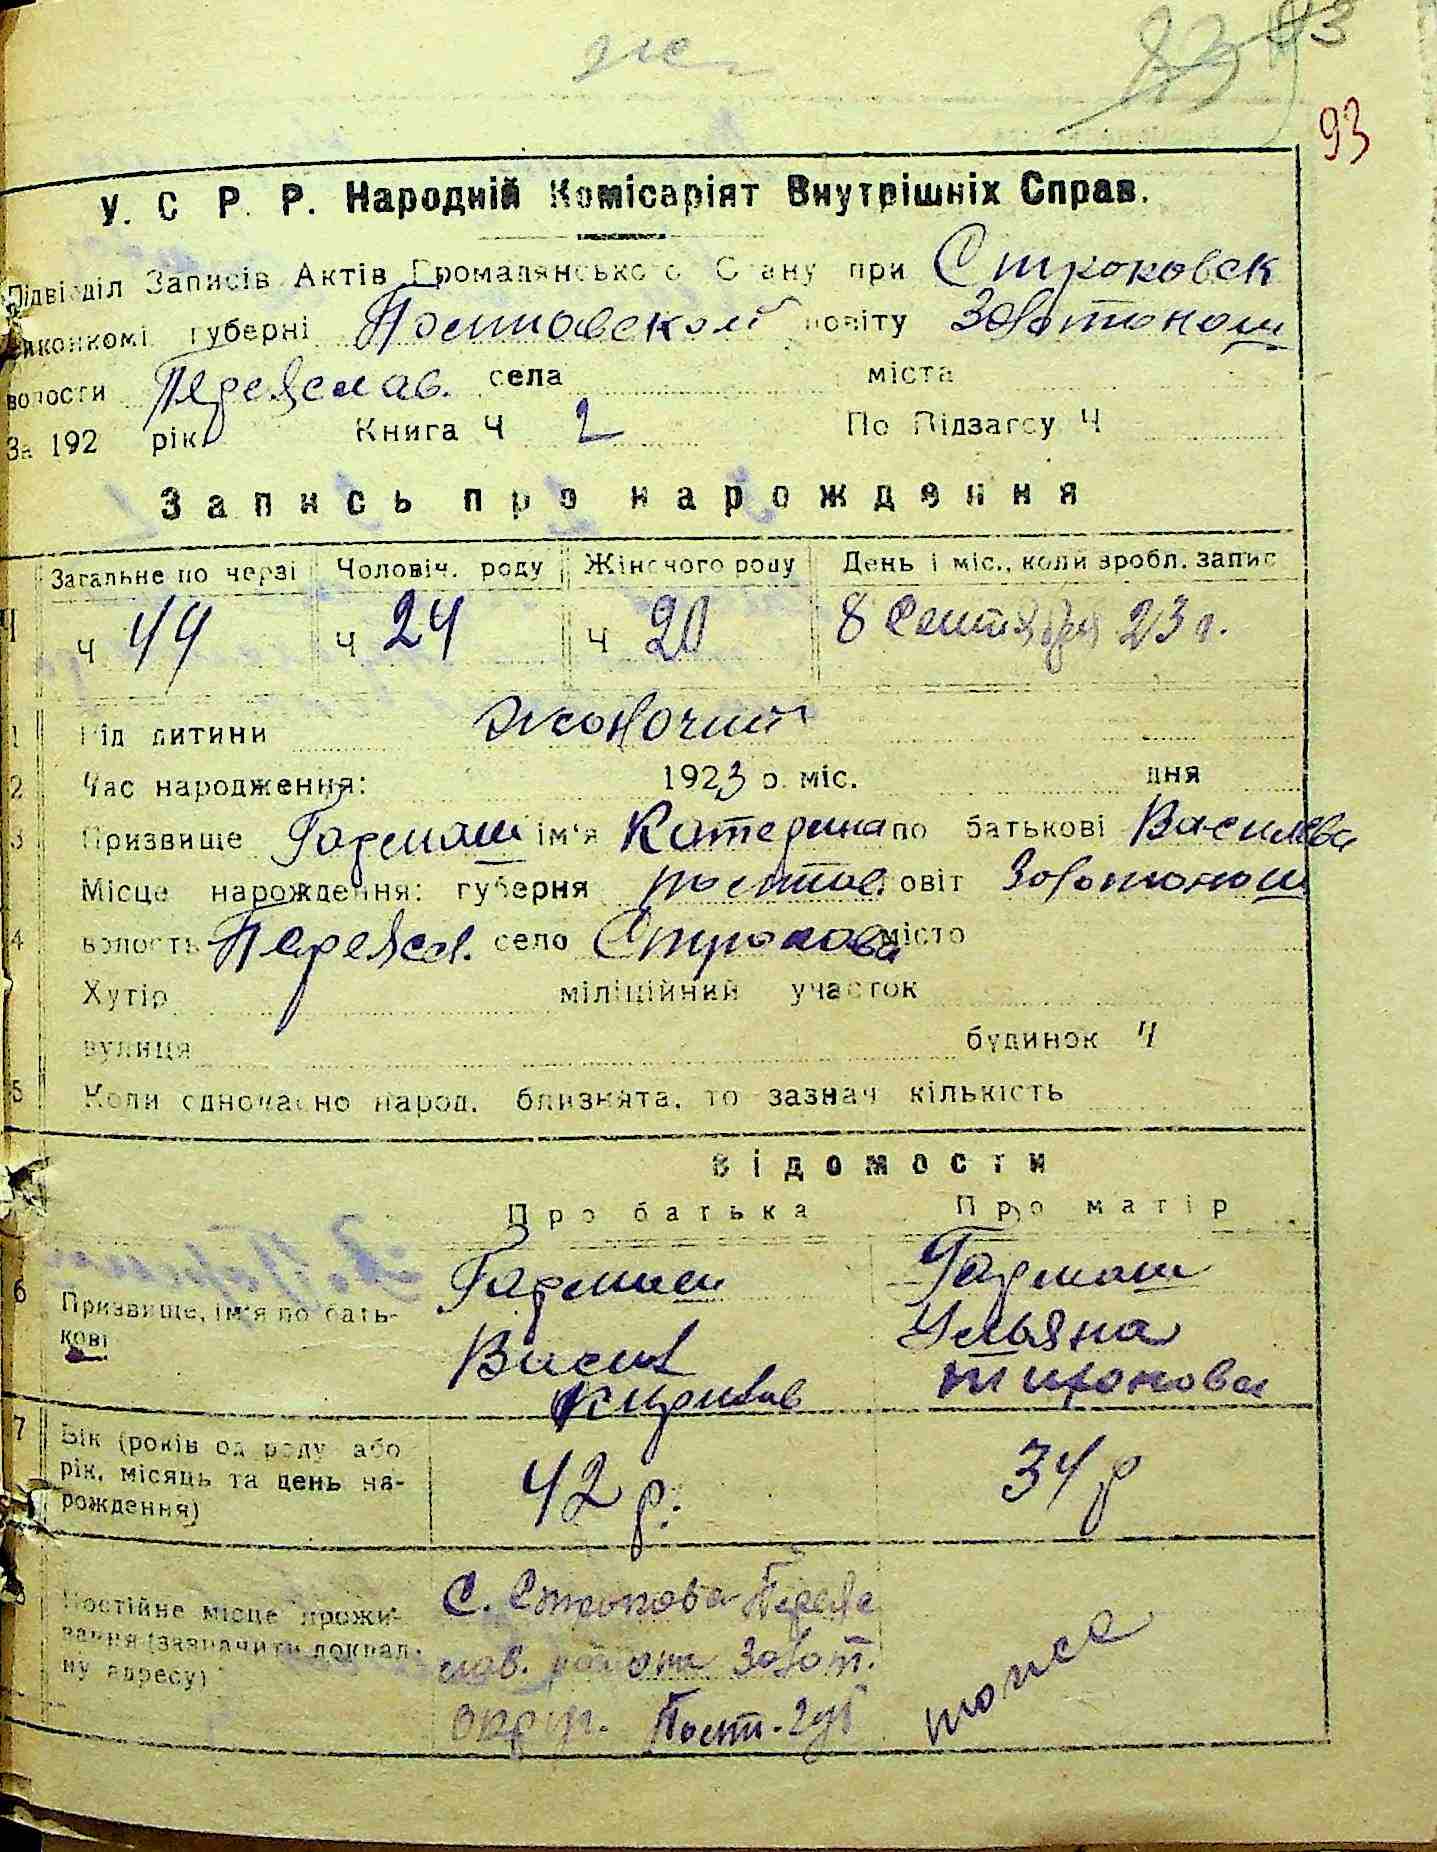 93
93
У. С. Р. Р. Народній Комісаріят Внутрішніх Справ.
Підвідділ Записів Актів Громадянського Стану при Строковск
виконкомі губерні Полтавской повіту Золотонош
волости Переяслав. села міста
За 192 рік. Книга Ч 2 По Підзагсу Ч
Запись про нарождення
Загальне по черзі Чоловіч. роду Жіночого роду День і міс., коли зробл. запис
Ч 44 Ч 24 Ч 20 8 Сентября 23 г.
1 Рід дитини жоночий
2 Час народження: 1923 р. міс. дня
3 Призвище Гармаш ім'я Катерина по батькові Василева
Місце нарождення: губерня Полтав. повіт Золотонош
4 волость Переясл. село Строкова місто
Хутір міліційний участок
вулиця будинок Ч
5 Коли одночасно народ. близнята, то зазнач кількість
Відомости
Про батька Про матір
6 Призвище, ім'я по бать-
кові
Гармаш Гармаш
Васил Ульяна
Кирилов Тихонова
7 Вік (років од роду або
рік, місяць та день на-
рождення)
42 р. 34 р
8 Постійне місце прожи-
вання (зазначити доклад-
ну адресу)
С. Строкова Переяс
лав. района Золот.
округ. Полт. губ
тоже